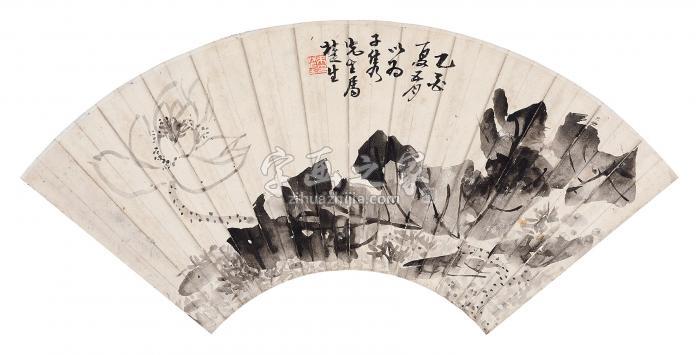 乙酉
夏五月
以为
子隽
先生属
楚生
字画之家
zihuazhijia.com